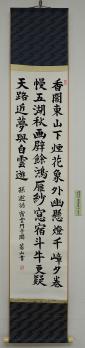 香閣東山下煙花象外幽懸燈千嶂夕卷
幔五湖秋画壁餘鴻雁紗窓宿斗牛更疑
天路近夢與白雲遊 孫逖詩宿雲門寺閣